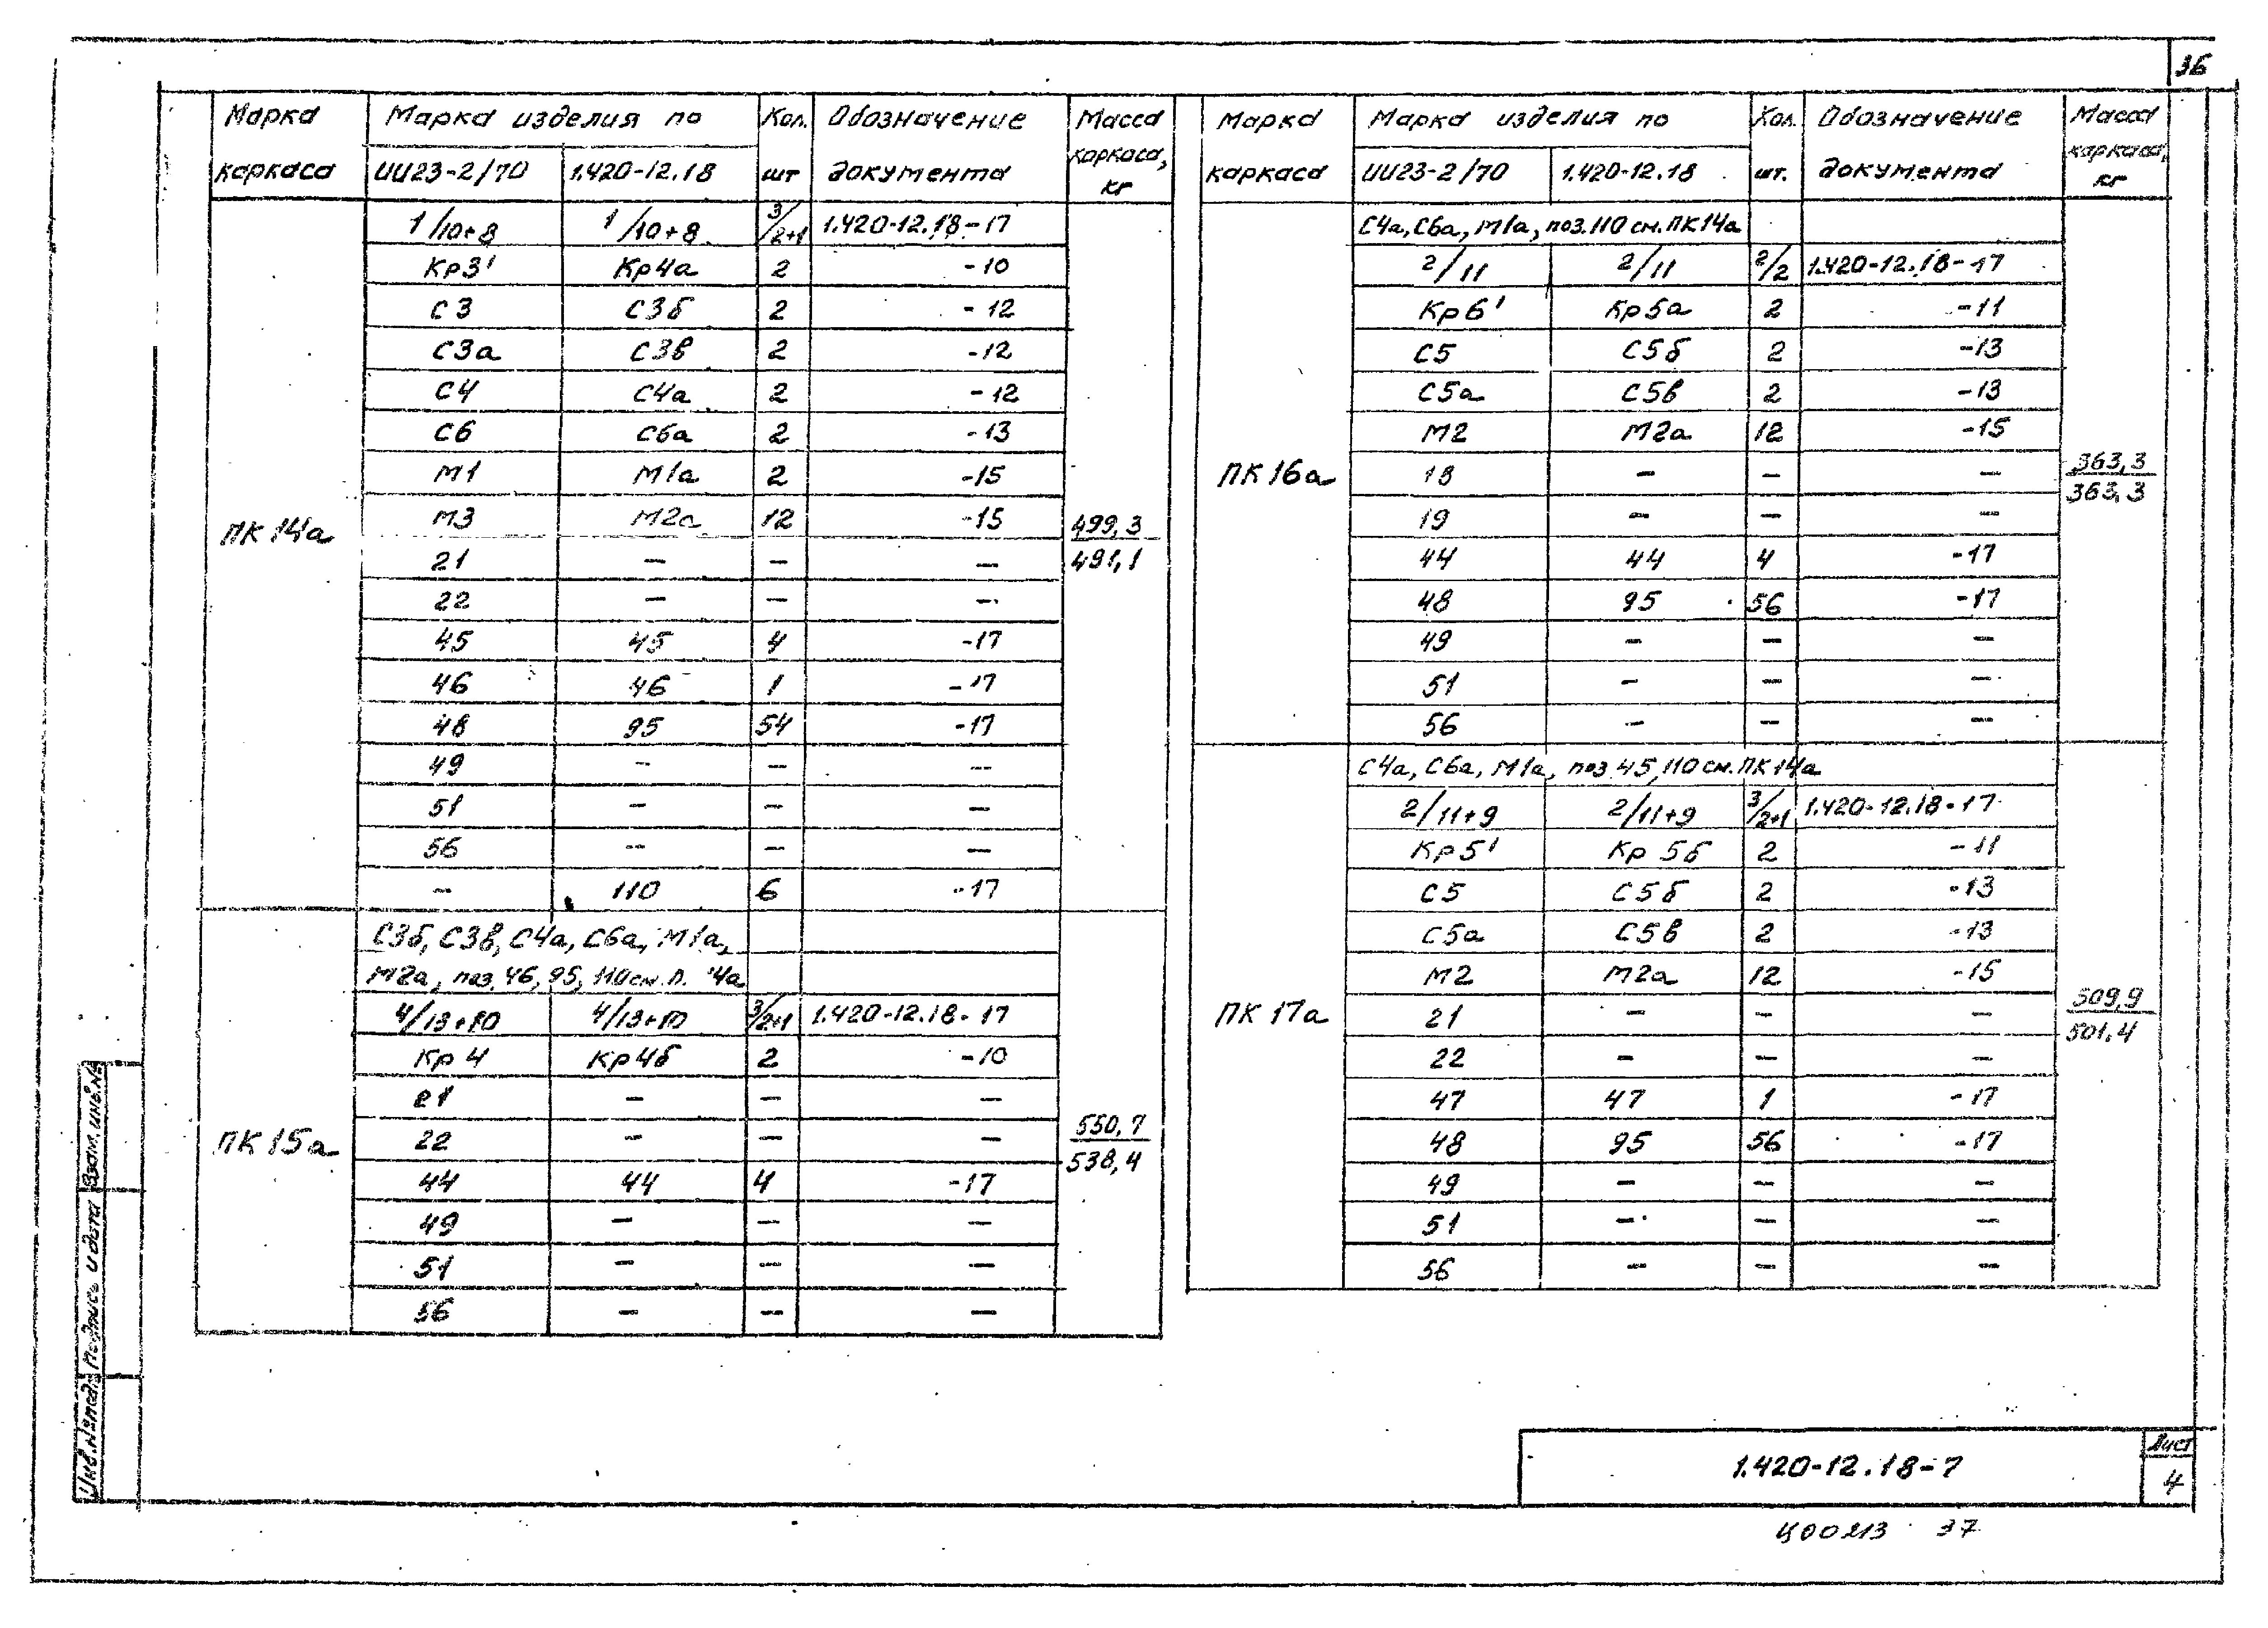 36
Марка каркаса | Марка изделия по | Кол. шт | Обозначение документа | Масса каркаса, кг
ИИ23-2/70 | 1.420-12.18
ПК 14а | 499,3 / 491,1
1/10+8 | 1/10+8 | 3/2+1 | 1.420-12.18-17
Кр3' | Кр4а | 2 | -10
С3 | С3б | 2 | -12
С3а | С3в | 2 | -12
С4 | С4а | 2 | -12
С6 | С6а | 2 | -13
М1 | М1а | 2 | -15
М3 | М2а | 12 | -15
21 | — | — | —
22 | — | — | —
45 | 45 | 4 | -17
46 | 46 | 1 | -17
48 | 95 | 54 | -17
49 | — | — | —
51 | — | — | —
56 | — | — | —
— | 110 | 6 | -17
ПК 15а | 550,7 / 538,4
С3б, С3в, С4а, С6а, М1а,
М2а, поз. 46, 95, 110 см. П. 4а
4/13+10 | 4/13+10 | 3/2+1 | 1.420-12.18-17
Кр 4 | Кр4б | 2 | -10
21 | — | — | —
22 | — | — | —
44 | 44 | 4 | -17
49 | — | — | —
51 | — | — | —
56 | — | — | —
Марка каркаса | Марка изделия по | Кол. шт. | Обозначение документа | Масса каркаса, кг
ИИ23-2/70 | 1.420-12.18
ПК 16а | 363,3 / 363,3
С4а, С6а, М1а, поз. 110 см. ПК14а
2/11 | 2/11 | 2/2 | 1.420-12.18-17
Кр6' | Кр5а | 2 | -11
С5 | С5б | 2 | -13
С5а | С5в | 2 | -13
М2 | М2а | 12 | -15
18 | — | — | —
19 | — | — | —
44 | 44 | 4 | -17
48 | 95 | 56 | -17
49 | — | — | —
51 | — | — | —
56 | — | — | —
ПК 17а | 509,9 / 501,4
С4а, С6а, М1а, поз 45, 110 см. ПК14а
2/11+9 | 2/11+9 | 3/2+1 | 1.420-12.18-17
Кр5' | Кр 5б | 2 | -11
С5 | С5б | 2 | -13
С5а | С5в | 2 | -13
М2 | М2а | 12 | -15
21 | — | — | —
22 | — | — | —
47 | 47 | 1 | -17
48 | 95 | 56 | -17
49 | — | — | —
51 | — | — | —
56 | — | — | —
Инв.№подл. Подпись и дата Взам.инв.№
1.420-12.18-7
Лист
4
Ц00213 37